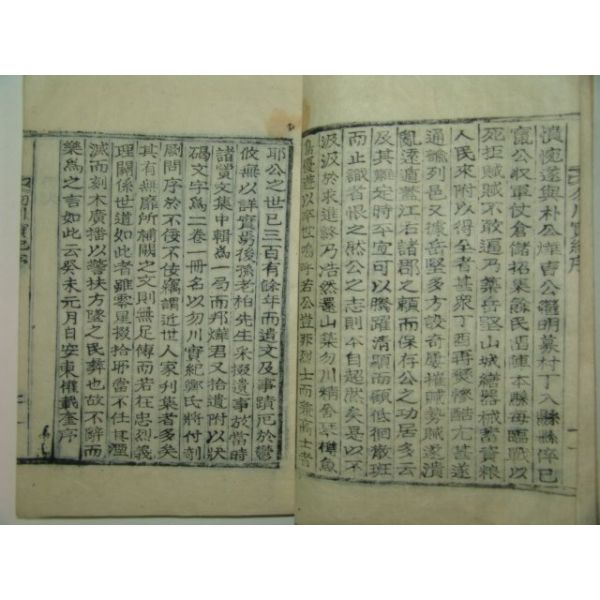 憤惋遂與朴公燁吉公瀣明募村丁入縣縣倅已
竄公收軍仗倉儲拓集蘇民酒陣本縣每臨戰以
死拒賊賊不敢逼乃築岳堅山城繕器械蓄資粮
人民來附者甚衆丁酉再燹慘酷尤甚遂
通諭列邑據岳堅多方設奇屢摧賊勢賊遂
亂遠遁蓋江右諸郡之賴而保存公之功居多云
及其難定時平宜可以騰躍清顯而低徊散班
而止識者恨之然公之志則本自超然矣是以不
汲汲於求進終乃浩然還山築勿川精舍 樵魚
以卒世嗚呼若公豈非烈士而兼高士者
耶公之世已三百有餘年而遺文及事蹟厄於鬱
攸無以詳實焉後孫老柏先生采掇遺事故當時
諸賢文集中輯爲一局而邦燁君又拾遺附以狀
碣文字爲二卷一冊名以勿川實紀鄕氏將付剞
劂問序於不佞不佞竊謂近世人家刊集者多矣
其有無靡所補闕之文則無足傳而若在忠烈義
理關係世道如此者雖零星掇拾耶當不任其湮
滅而刻木廣播以警扶方墜之民彝也故不辭而
樂爲之言如此云癸未元月日安東權載奎序